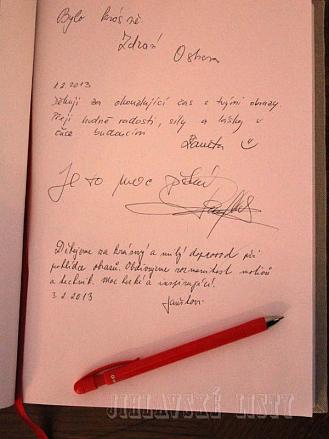 Bylo krásně
Zdraví
Ostrava
1.2.2013
Děkuji za okouzlující čas s tvými obrazy.
Přeji hodně radosti, síly a lásky v
čase budoucím
Žaneta
Je to moc pěkné
Děkujeme za krásný a milý doprovod při
pohlídce obrazů. Obdivujeme rozmanitost motivů
a technik. Moc hezké a inspirující.
3.2.2013
JIHLAVSKÉ LISTY